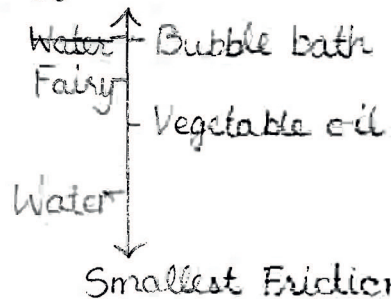 Water Bubble bath
Fairy
Vegetable oil
Water
Smallest Friction